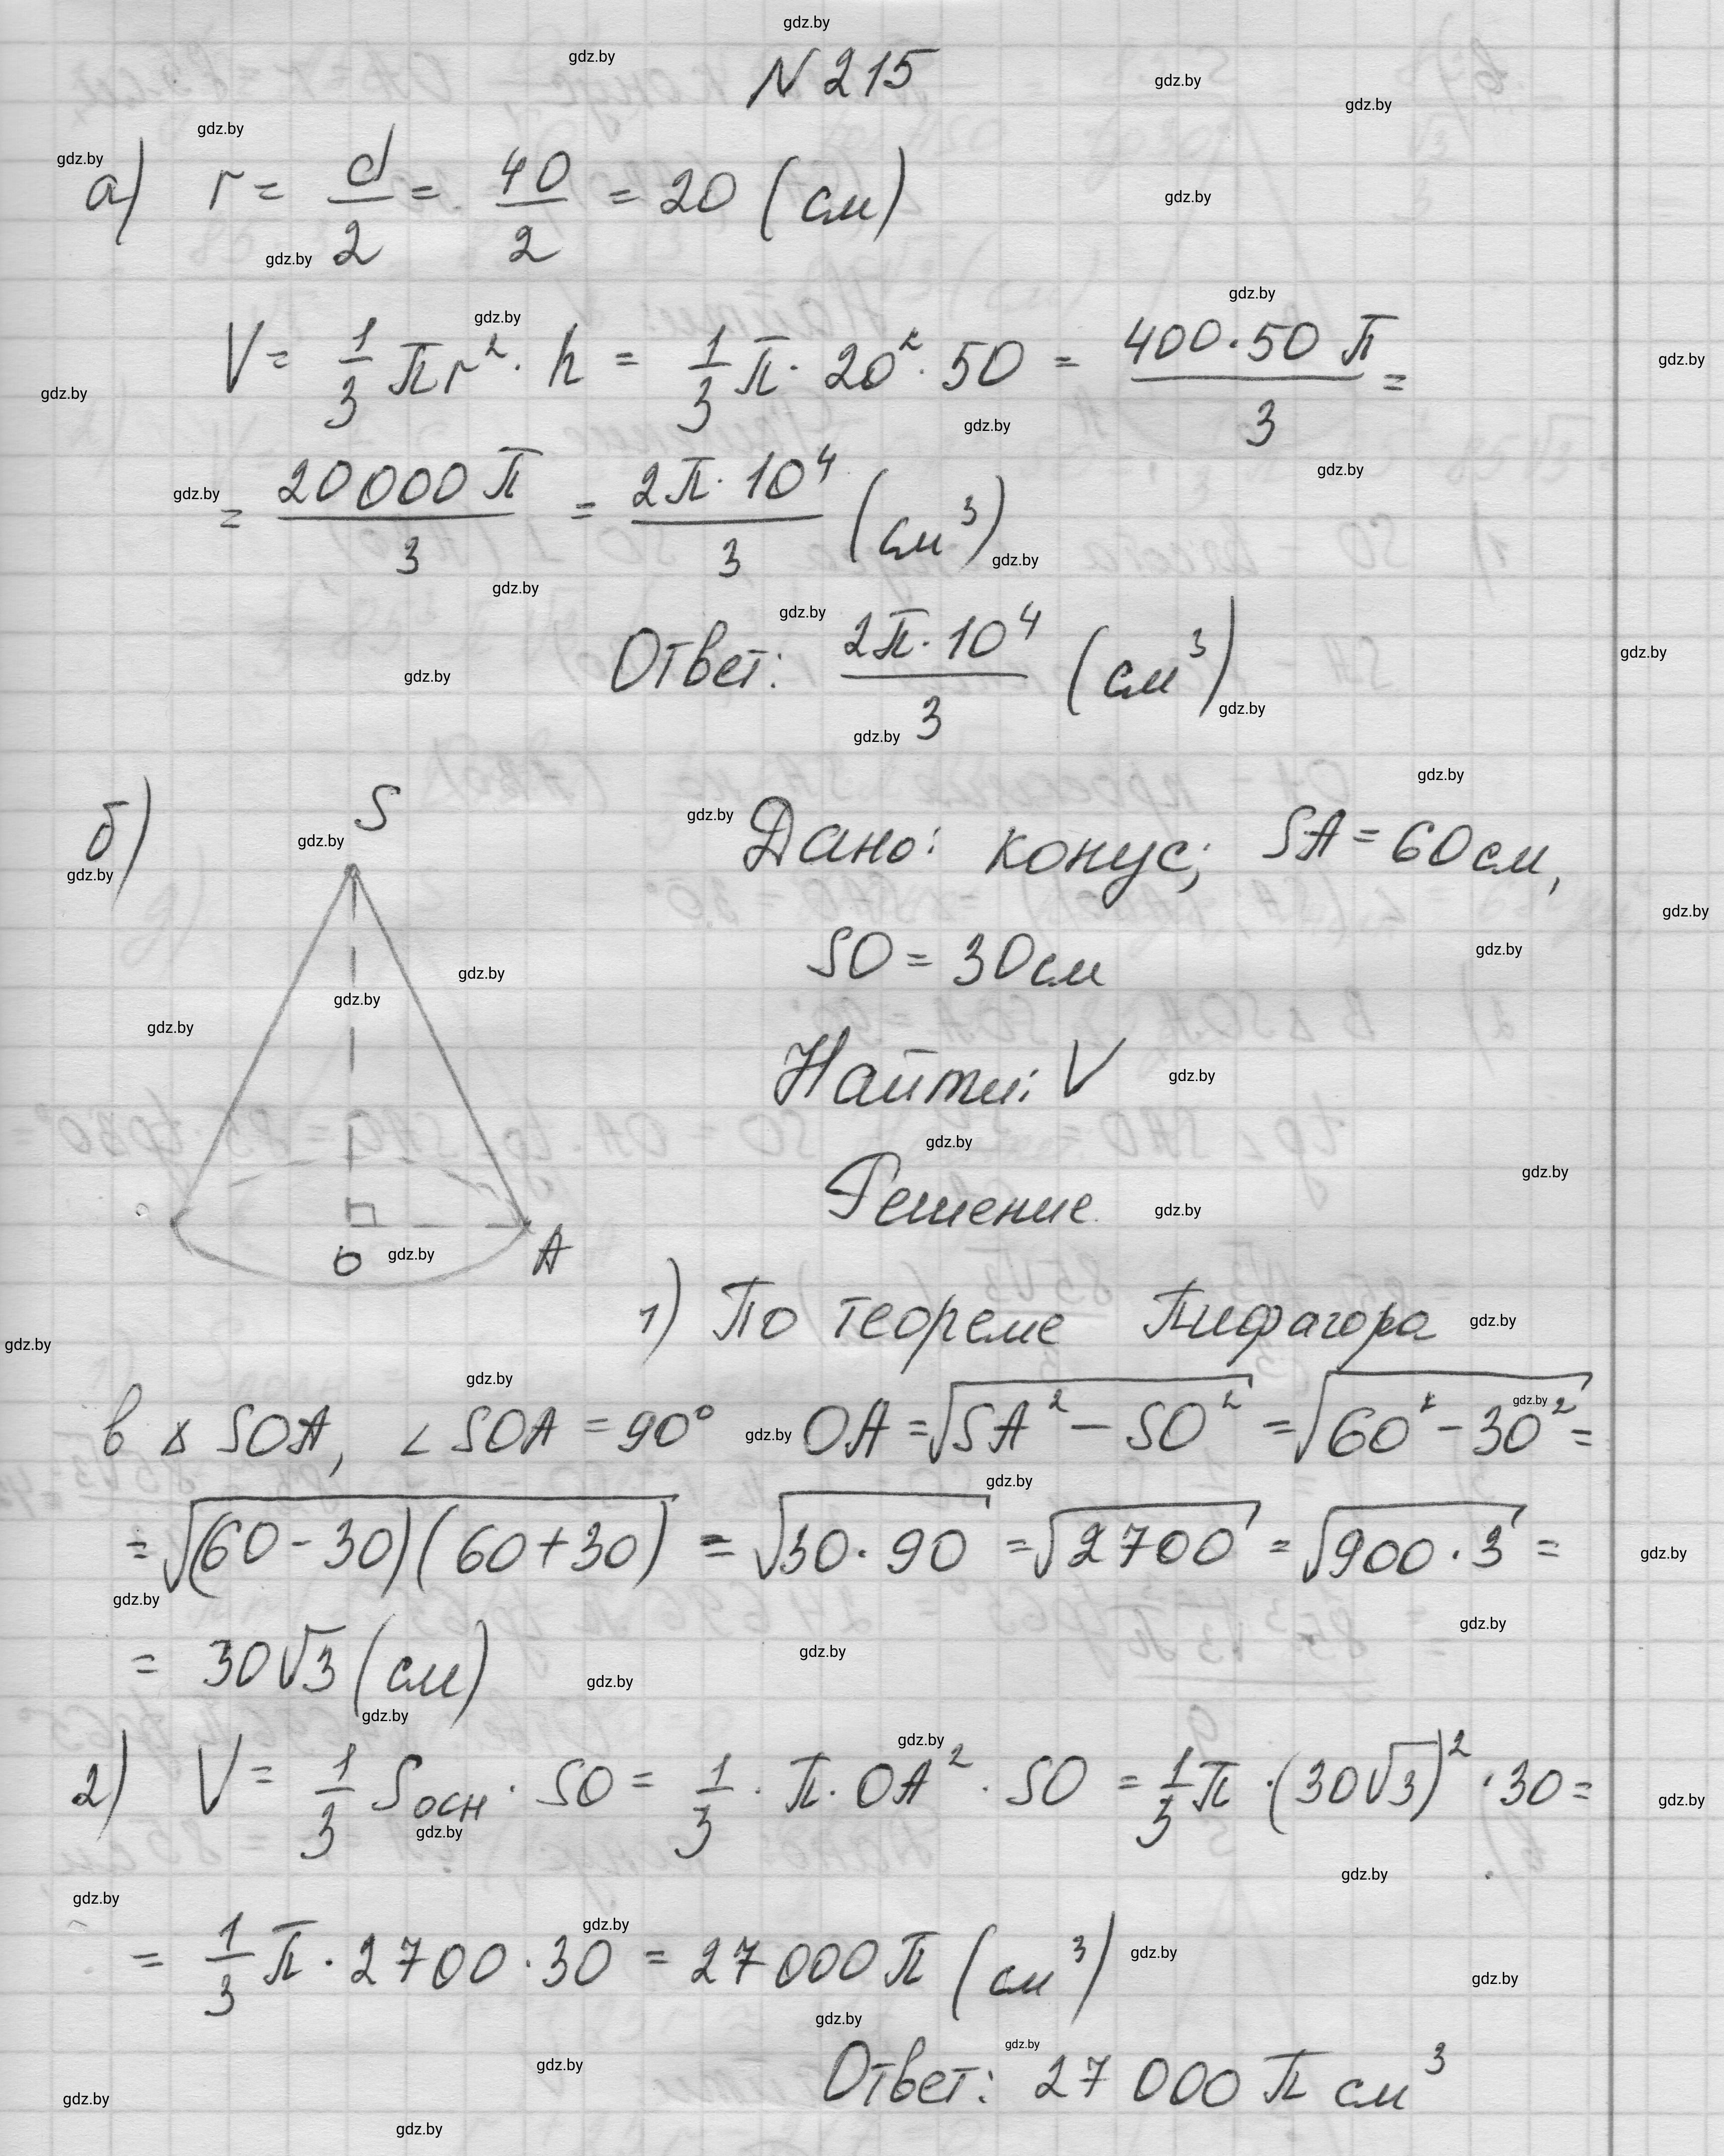 N 215
а) r = d/2 = 40/2 = 20 (см)
V = 1/3 πr² · h = 1/3 π · 20² · 50 = 400·50 π/3 =
= 20000 π/3 = 2π·10⁴/3 (см³)
Ответ: 2π·10⁴/3 (см³)
б) S
O A
Дано: конус; SA = 60 см,
SO = 30 см
Найти: V
Решение
1) По теореме Пифагора
в △ SOA, ∠ SOA = 90° OA = √(SA² − SO²) = √(60² − 30²) =
= √((60 − 30)(60 + 30)) = √(30 · 90) = √2700 = √(900 · 3) =
= 30√3 (см)
2) V = 1/3 Sосн · SO = 1/3 · π · OA² · SO = 1/3 π · (30√3)² · 30 =
= 1/3 π · 2700 · 30 = 27000 π (см³)
Ответ: 27 000 π см³
gdz.by